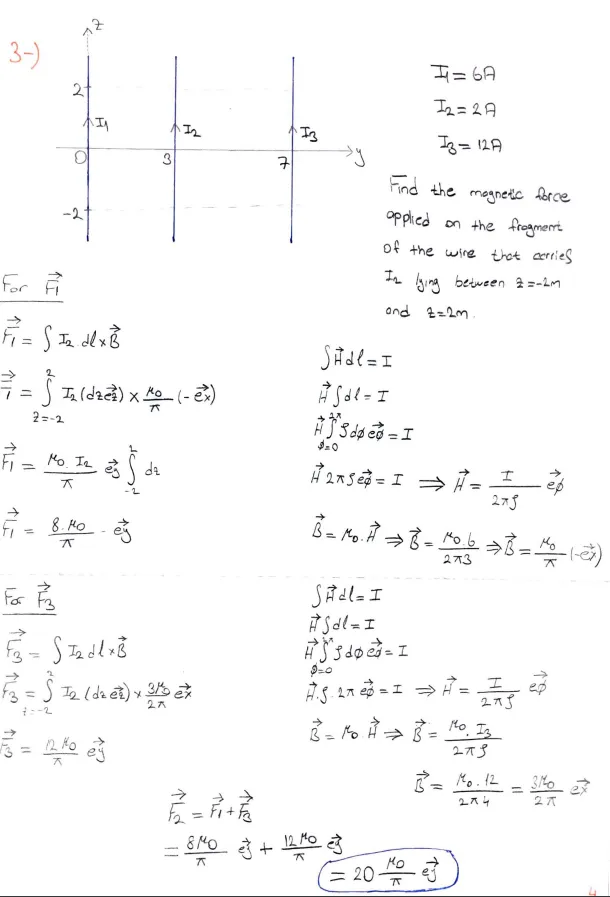 3-)
z
2
I₁
I₂
I₃
0
3
7
y
-2
I₁ = 6A
I₂ = 2A
I₃ = 12A
Find the magnetic force
applied on the fragment
of the wire that carries
I₂ lying between z=-2m
and z=2m.
For F₁→
F₁→ = ∫ I₂.dl×B→
F₁→ = ∫_{z=-2}^{2} I₂(dz e_z→) × μ₀/π (-e_x→)
F₁→ = μ₀.I₂/π e_y→ ∫_{-2}^{2} dz
F₁→ = 8.μ₀/π - e_y→
∫H→dl = I
H→∫dl = I
H→∫_{φ=0}^{2π} ρdφ e_φ→ = I
H→ 2πρ e_φ→ = I ⇒ H→ = I/2πρ e_φ→
B→ = μ₀.H→ ⇒ B→ = μ₀.6/2π3 ⇒ B→ = μ₀/π (-e_x→)
For F₃→
F₃→ = ∫ I₂dl×B→
F₃→ = ∫_{z=-2}^{2} I₂(dz e_z→) × 3μ₀/2π e_x→
F₃→ = 12μ₀/π e_y→
∫H→dl = I
H→∫dl = I
H→∫_{φ=0}^{2π} ρdφ e_φ→ = I
H→.ρ.2π e_φ→ = I ⇒ H→ = I/2πρ e_φ→
B→ = μ₀.H→ ⇒ B→ = μ₀.I₃/2πρ
B→ = μ₀.12/2π4 = 3μ₀/2π e_x→
F₂→ = F₁→ + F₃→
= 8μ₀/π e_y→ + 12μ₀/π e_y→
= 20 μ₀/π e_y→
4